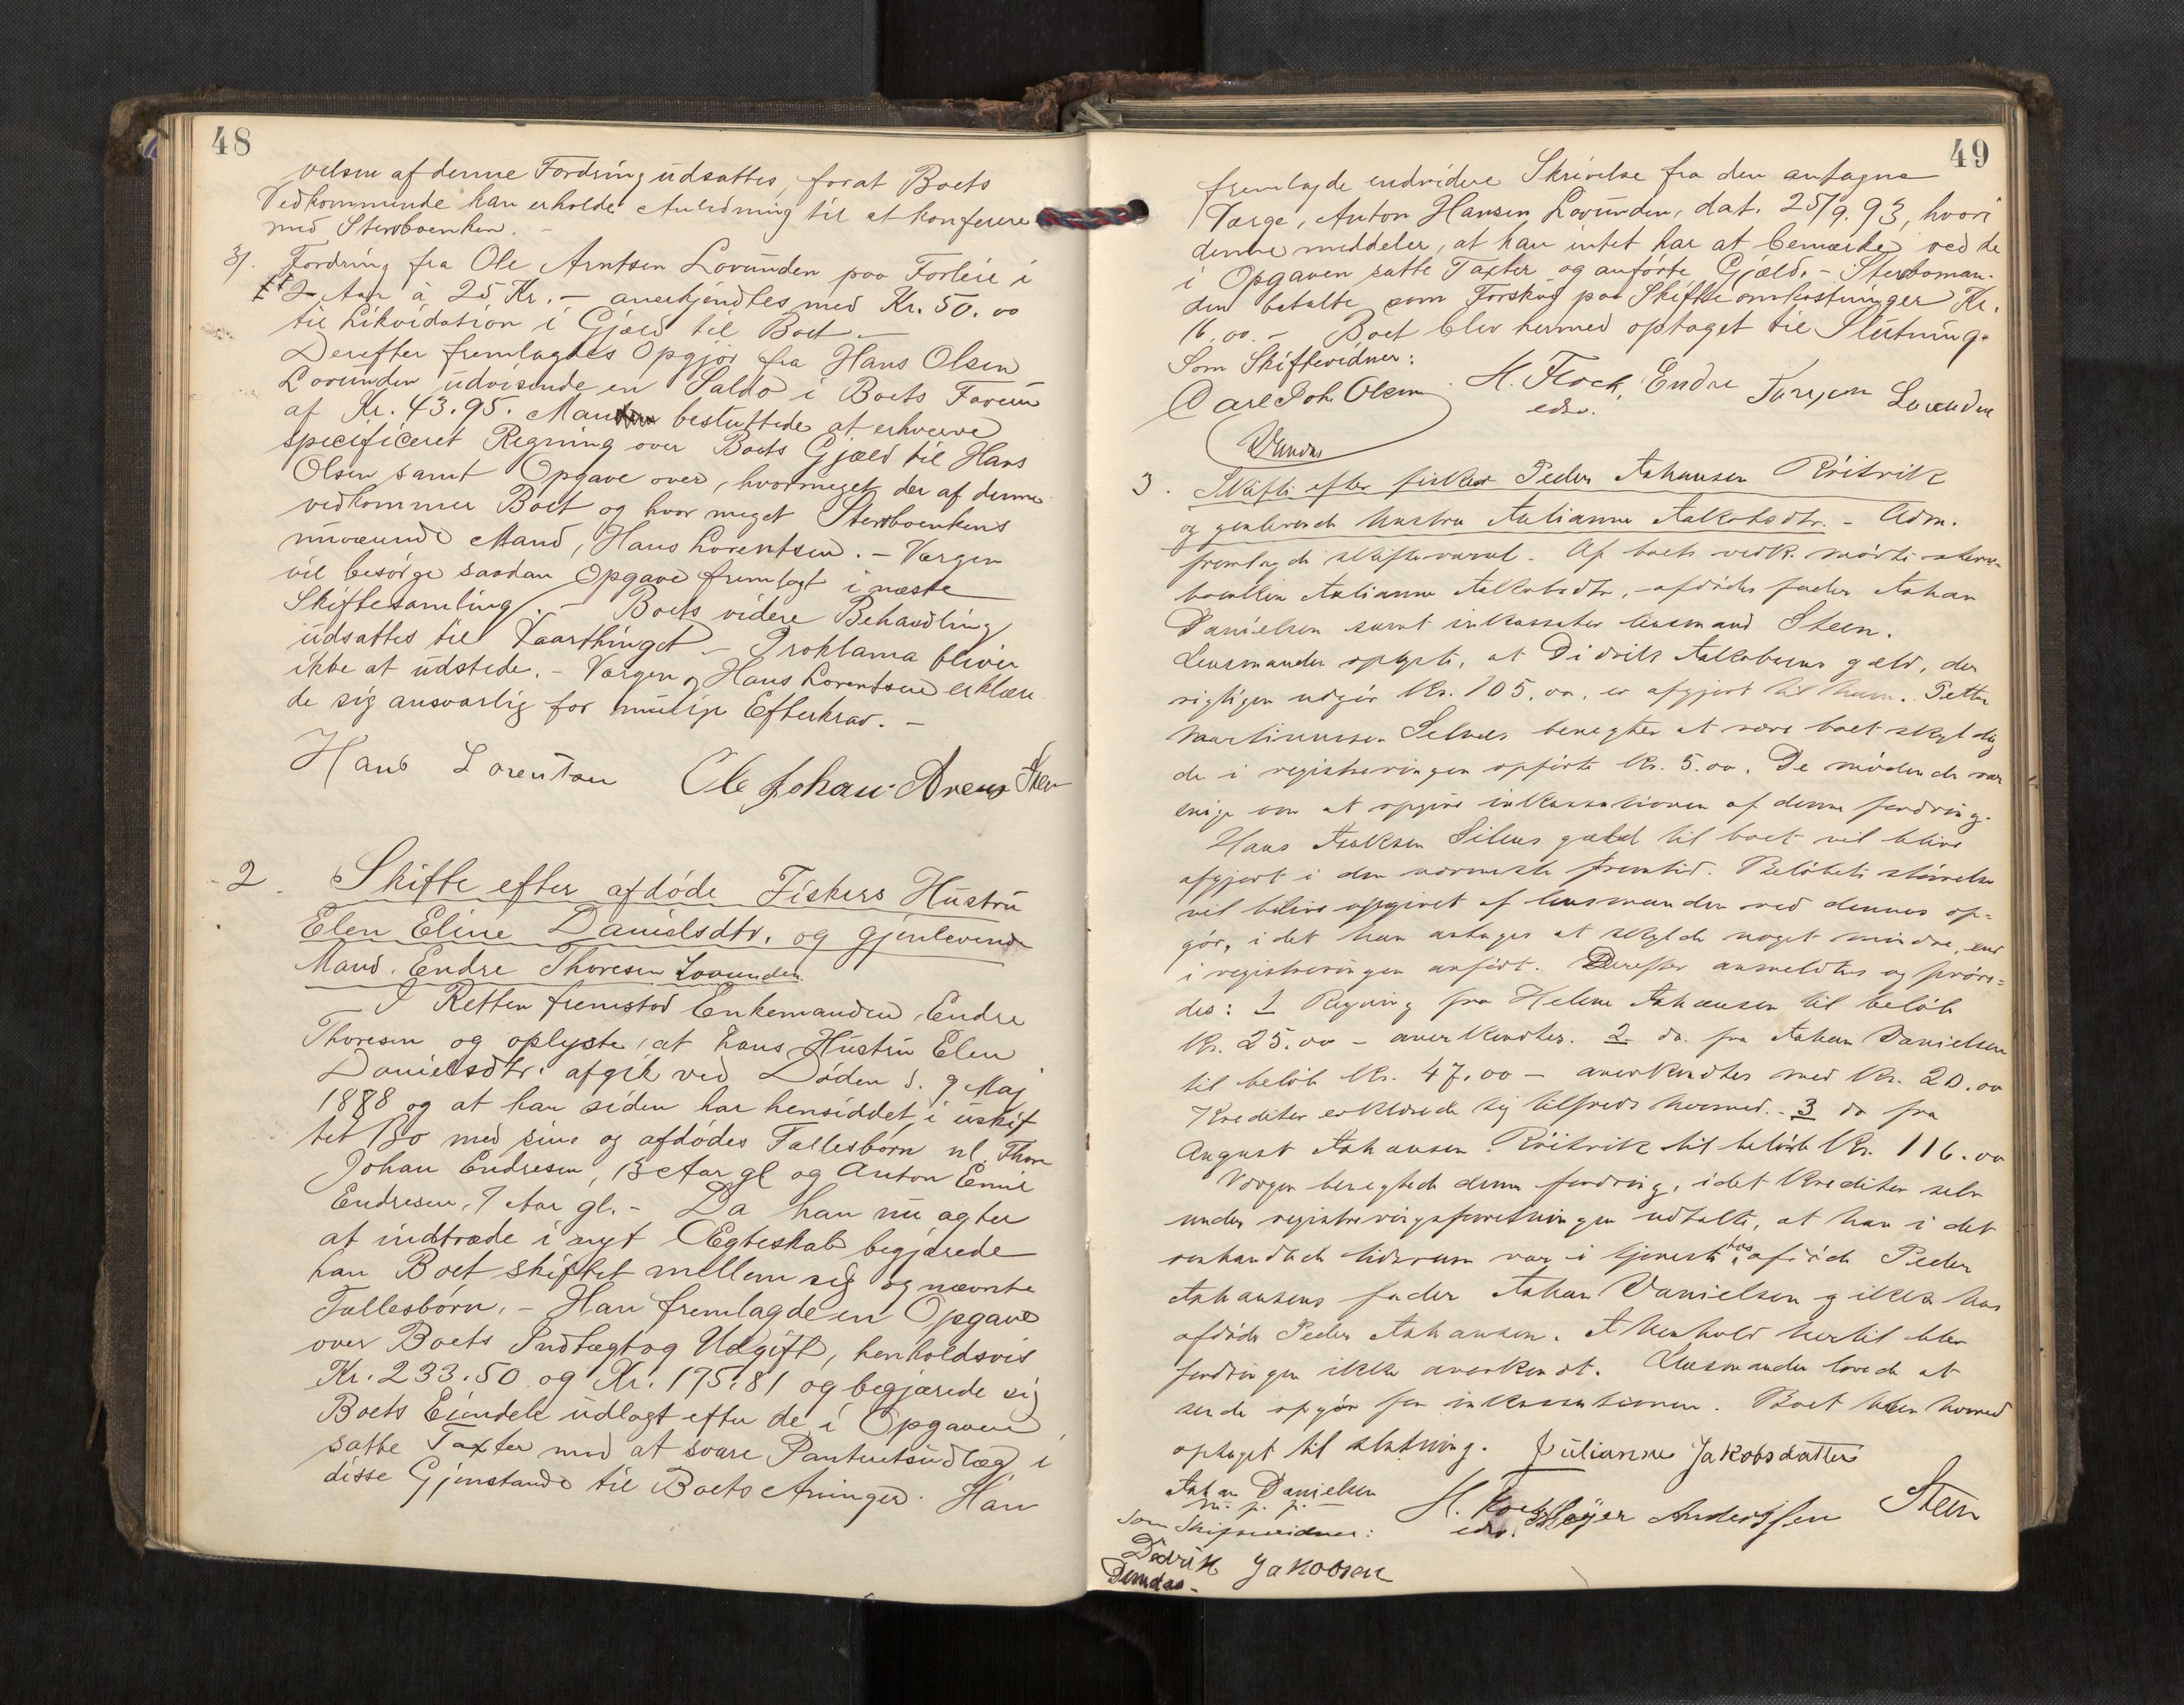 48
velsen af denne Fordring udsattes, forat Boets
Vedkommende kan erholde Anledning til at konferere
med Stervboenken. –
3). Fordring fra Ole Arntsen Lovunden paa Forleie i
2 Aar à 25 Kr. – anerkjendtes med Kr. 50.00
til Likvidation i Gjæld til Boet. –
Derefter fremlagdes Opgjør fra Hans Olsen
Lovunden udvisende en Saldo i Boets Faveur
af Kr. 43.95. Man besluttede at erhverve
specificeret Regning over Boets Gjæld til Hans
Olsen samt Opgave over, hvormeget der af denne
vedkommer Boet og hvor meget Stervboenkens
nuværende Mand, Hans Lorentsen. – Værgen
vil besørge saadan Opgave fremlagt i næste
Skiftesamling. – Boets videre Behandling
udsattes til Vaarthinget. – Proklama bliver
ikke at udstede. – Værgen og Hans Lorentsen erklære
de sig ansvarlig for mulige Efterkrav. –
Hans Lorentsen Ole Johan Arens Steen
2. Skifte efter afdøde Fiskers Hustru
Elen Eline Danielsdtr. og gjenlevende
Mand. Endre Thoresen Lovunden.
I Retten fremstod Enkemanden, Endre
Thoresen og oplyste, at hans Hustru Elen
Danielsdtr. afgik ved Døden d. 9 Maj
1888 og at han siden har hensiddet i uskif
tet Bo med sine og afdødes Fællesbørn nl. Thore
Johan Endresen, 13 Aar gl og Anton Emil
Endresen, 7 Aar gl. – Da han nu agter
at indtræde i nyt Ægteskab begjærede
han Boet skiftet mellem sig og nævnte
Fællesbørn. – Han fremlagde en Opgave
over Boets Indtægt og Udgift, henholdsvis
Kr. 233.50 og Kr. 175.81 og begjærede sig
Boets Eiendele udlagt efter de i Opgaven
satte Taxter mod at svare Panteretsudlæg i
disse Gjenstande til Boets Arvinger. Han
49
fremlagde endvidere Skrivelse fra den antagne
Værge, Anton Hansen Lovunden, dat. 25/9. 93, hvori
denne meddeler, at han intet har at bemærke ved de
i Opgaven satte Taxter og anførte Gjæld. – Stervboman-
den betalte som Forskud paa Skifteomkostninger Kr.
16.00. – Boet blev hermed optaget til Slutning.
Som Skiftevidner:
Carl Joh. Olsen H. Flock, Endre Lovunden
edsv.
3. Skifte efter fisker Peder Johansen Röitvik
og genlevende hustru Julianne Jakobsdtr. – Adm.
fremlagde skiftevarsel. Af boets vedk. mødte sterv-
boenken Julianne Jakobsdtr., afdødes fader Johan
Danielsen samt inkassator lensmand Steen.
Lensmanden oplyste, at Didrik Jakobsens gæld, der
rigtigen udgør Kr. 105.00, er afgjort til ham. Petter
Martinussen Selnes benegter at være boet skyldig
de i registreringen opførte Kr. 5.00. De mødende var
enige om at opgive inkassationen af denne fordring.
Hans Isaksen Silnes gæld til boet vil blive
afgjort i den nærmeste fremtid. Beløbets størrelse
vil blive opgivet af lensmanden ved dennes op=
gør, idet han antages at skylde noget mindre, end
i registreringen anført. Derefter anmeldtes og prøve=
des: 1 Regning fra Helene Johansen til beløb
Kr. 25.00 – anerkendtes. 2. do. fra Johan Danielsen
til beløb Kr. 47.00 – anerkendtes med Kr. 20.00
Kreditor erklærede sig tilfreds hermed. – 3 do fra
August Johansen Röitvik til beløb Kr. 116.00
Værgen benegtede denne fordring, idet kreditor selv
under registreringsforretningen udtalte, at han i det
omhandlede tidsrum var i tjeneste hos afdøde Peder
Johansens fader Johan Danielsen og ikke hos
afdøde Peder Johansen. I henhold hertil blev
fordringen ikke anerkendt. Lensmanden lovede at
sende opgør for inkassationen. Boet blev hermed
optaget til slutning. Julianne Jakobsdatter
Johan Danielsen
m. p. p.
H. Flock Meyer Anderssen Steen
edsv.
Som Skiftevidner:
Didrik Jakobsen